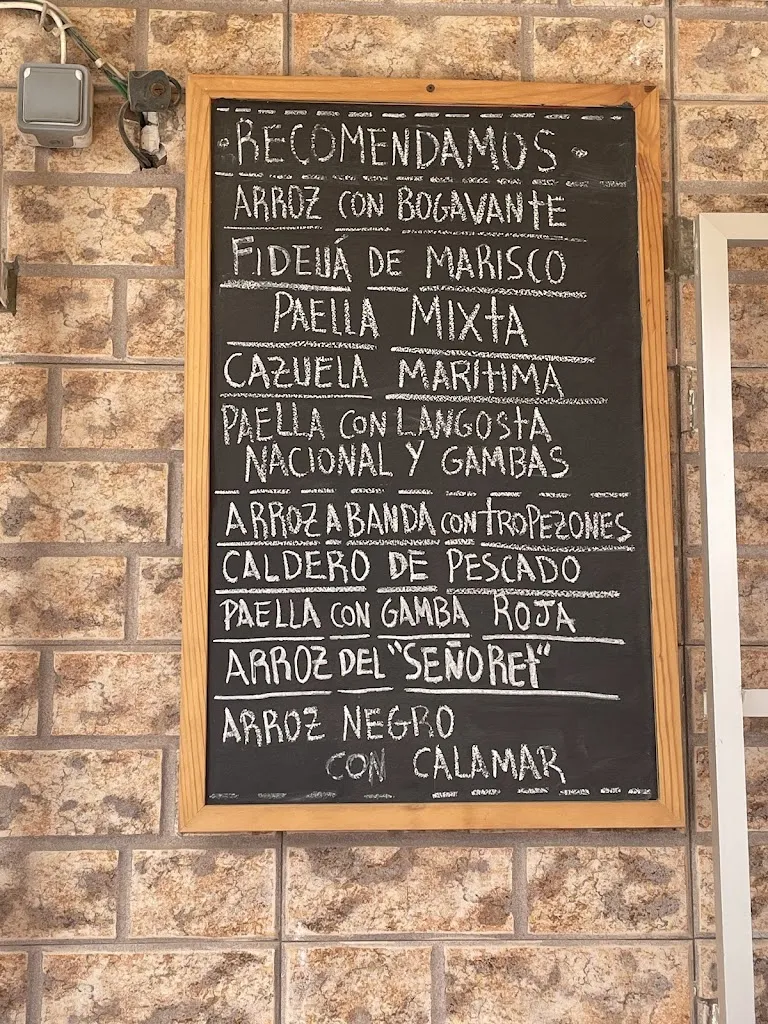 RECOMENDAMOS
ARROZ CON BOGAVANTE
FIDEUÁ DE MARISCO
PAELLA MIXTA
CAZUELA MARITIMA
PAELLA CON LANGOSTA
NACIONAL Y GAMBAS
ARROZ A BANDA CON TROPEZONES
CALDERO DE PESCADO
PAELLA CON GAMBA ROJA
ARROZ DEL "SEÑORET"
ARROZ NEGRO
CON CALAMAR